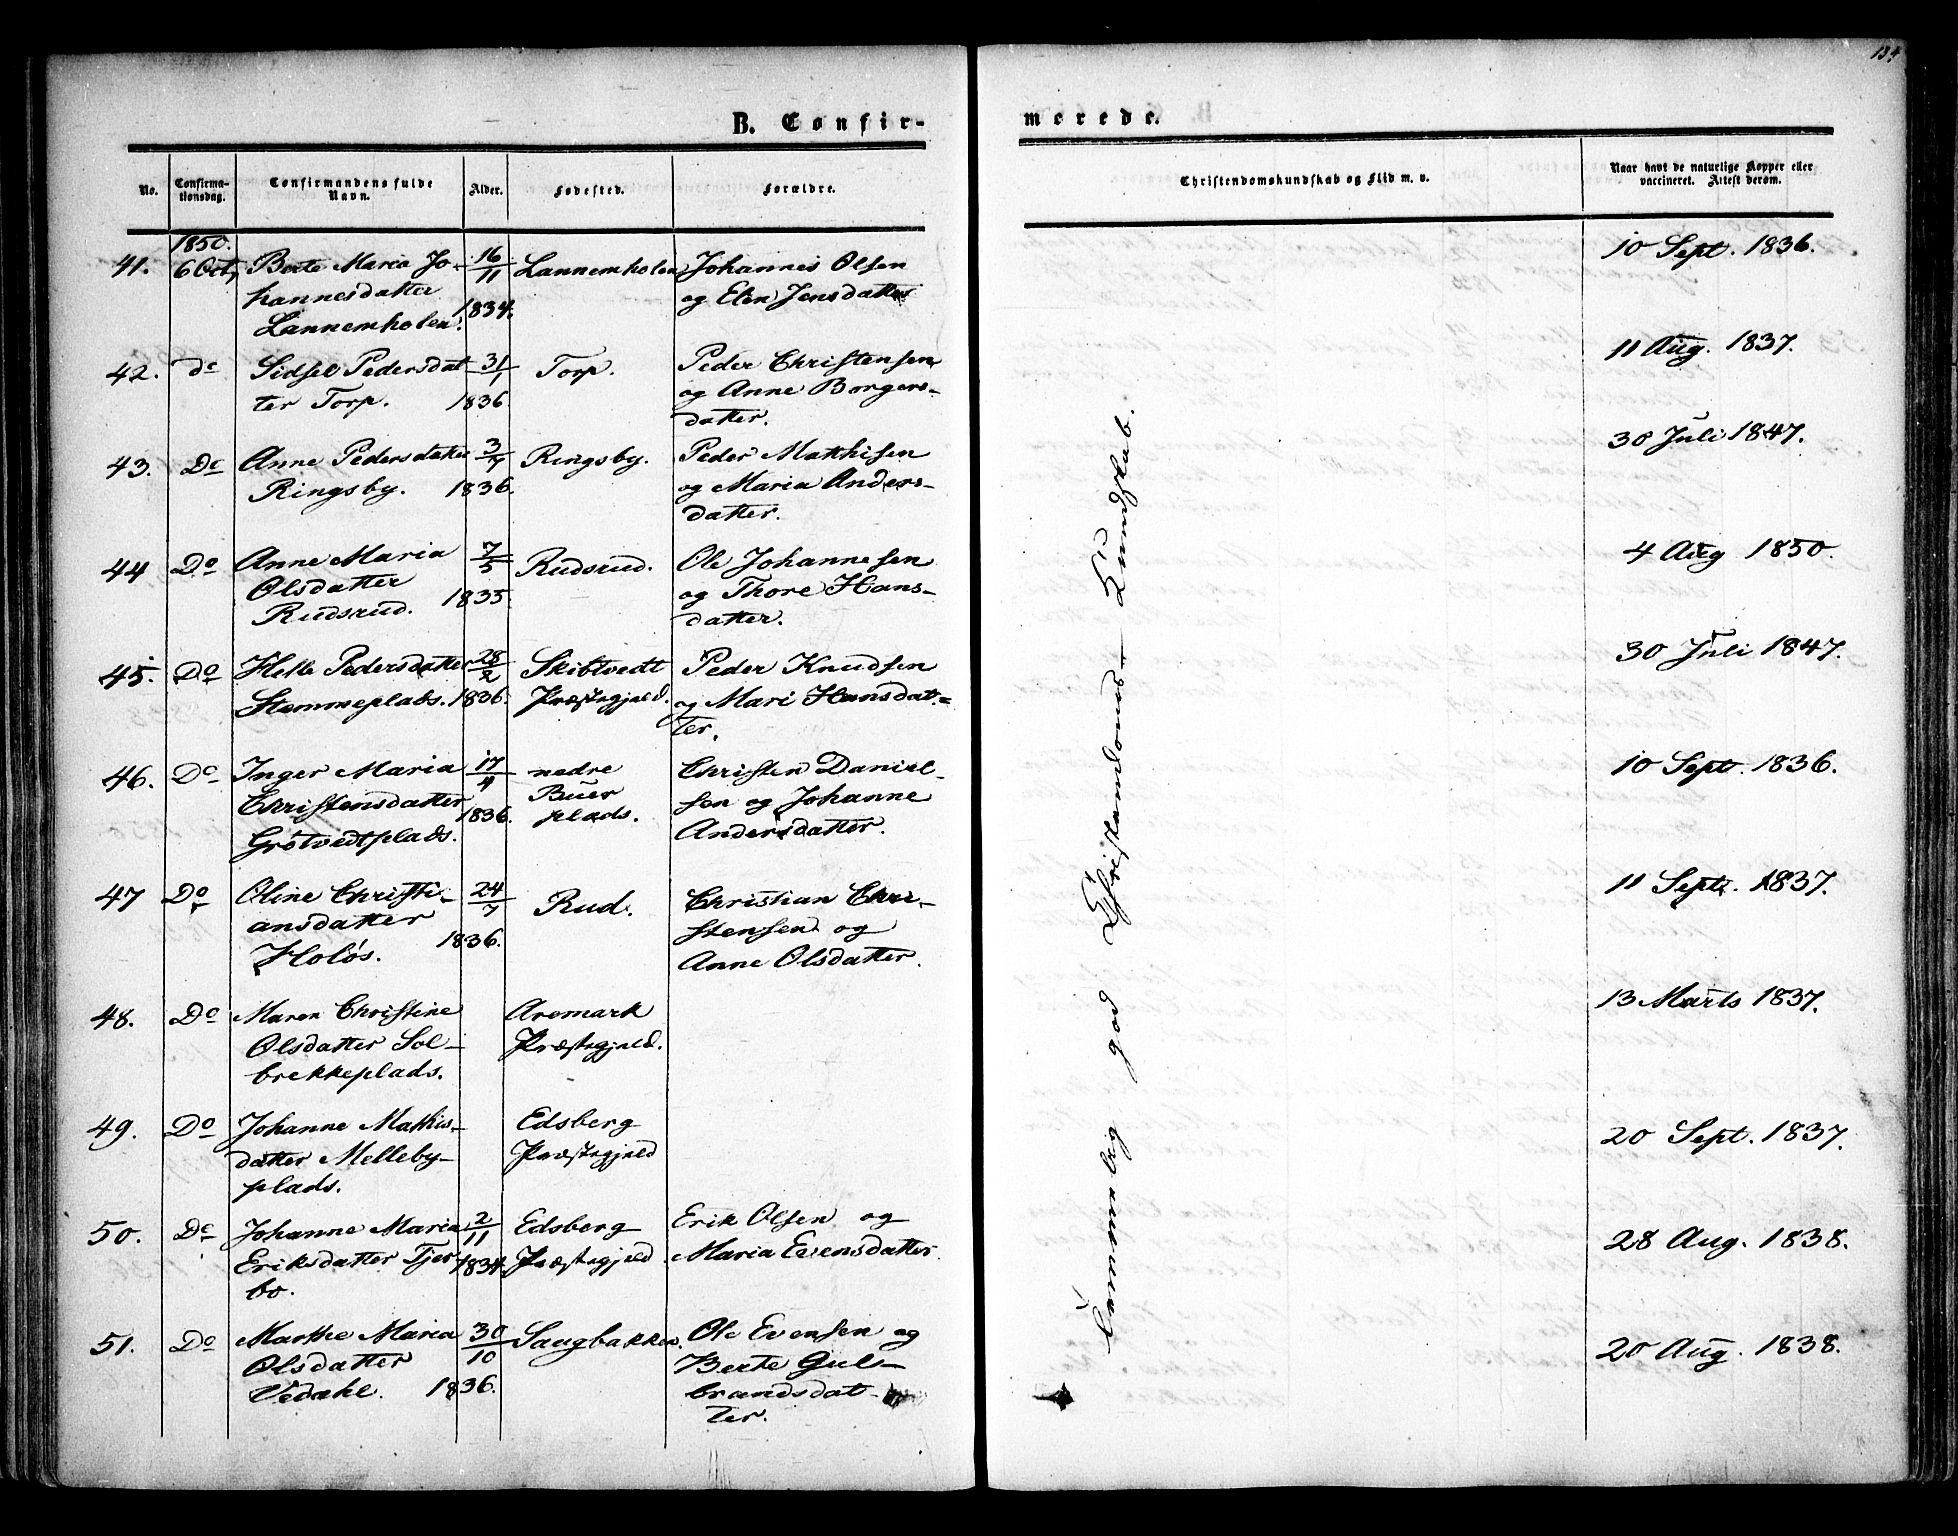 134
B. Confir-
merede.
No.
Confirma-
tionsdag.
Confirmandens fulde
Navn.
Alder.
Fødested.
Forældre.
Christendomskundskab og Flid m. v.
Naar havt de naturlige Kopper eller
vaccineret. Attest derom.
1850.
41. 6 Oct, Berte Maria Jo- 16/11 Lannemholen Johannes Olsen 10 Sept. 1836.
hannesdatter 1834. og Elen Jensdatter
Lannemholen.
42. do Sidsel Pedersdat 31/1 Torp. Peder Christensen 11 Aug. 1837.
ter Torp. 1836. og Anne Borgers-
datter.
43. Do Anne Pedersdatter 3/7 Ringsby. Peder Mathisen 30 Juli 1847.
Ringsby. 1836. og Maria Anders-
datter.
44 Do Anne Maria 7/5 Rudsrud. Ole Johannesen 4 Aug 1850.
Olsdatter 1835. og Thore Hans-
Rudsrud. datter.
45. Do Helle Pedersdatter 28/2 Skibtvedt Peder Knudsen 30 Juli 1847.
Stemmeplads. 1836. Præstegjeld. og Mari Hansdat-
ter.
46. Do Inger Maria 17/4 nedre Christen Daniel- 10 Sept. 1836.
Christensdatter 1836. Buer sen og Johanne
Grötvedtplads. plads. Andersdatter.
47 Do Oline Christi- 24/7 Rud. Christian Chri- 11 Sept. 1837.
ansdatter 1836. stensen og
Holös. Anne Olsdatter.
48. Do Maren Christine Aremark 13 Marts 1837.
Olsdatter Sol- Præstegjeld.
brekkeplads.
49. Do Johanne Mathis- Edsberg 20 Sept. 1837.
datter Melleby- Præstegjeld
plads.
50. Do Johanne Maria 2/11 Edsberg Erik Olsen og 28 Aug. 1838.
Eriksdatter Tjer 1834. Præstegjeld Maria Evensdatter.
bo.
51. Do Marthe Maria 30/10 Saugbakken. Ole Evensen og 20 Aug. 1838.
Olsdatter Berte Gul-
Vedahl. 1836. brandsdat-
ter.
Temmelig god Christendoms-Kundskab.